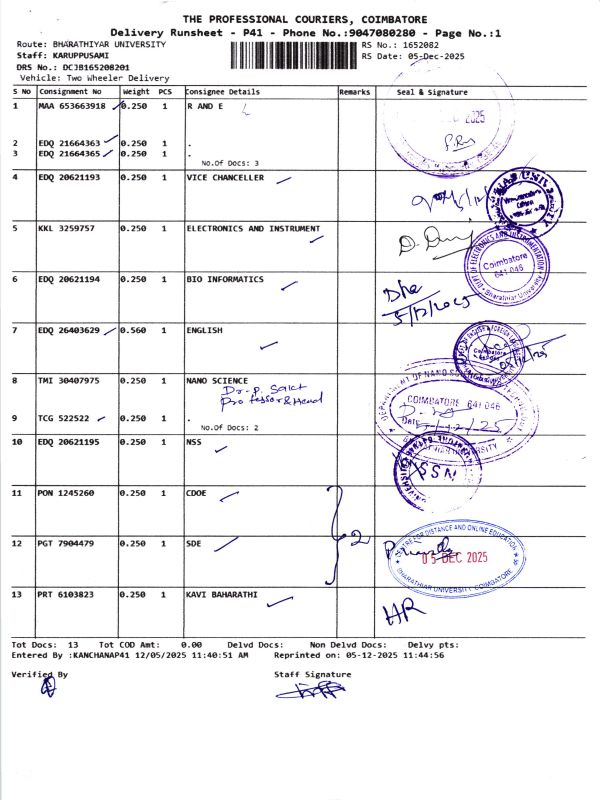 THE PROFESSIONAL COURIERS, COIMBATORE
Delivery Runsheet - P41 - Phone No.:9047080280 - Page No.:1
Route: BHARATHIYAR UNIVERSITY RS No.: 1652082
Staff: KARUPPUSAMI RS Date: 05-Dec-2025
DRS No.: DCJB165208201
Vehicle: Two Wheeler Delivery
S No Consignment No Weight PCS Consignee Details Remarks Seal & Signature
1 MAA 653663918 0.250 1 R AND E
2025
2 EDQ 21664363 0.250 1 .
3 EDQ 21664365 0.250 1 .
No.Of Docs: 3
4 EDQ 20621193 0.250 1 VICE CHANCELLER
5 KKL 3259757 0.250 1 ELECTRONICS AND INSTRUMENT
DEPT. OF ELECTRONICS AND INSTRUMENTATION
Coimbatore
641 046
Bharathiar University
6 EDQ 20621194 0.250 1 BIO INFORMATICS
5/12/2025
7 EDQ 26403629 0.560 1 ENGLISH
Coimbatore
8 TMI 30407975 0.250 1 NANO SCIENCE
Dr. P.
Professor & Head
DEPARTMENT OF NANO
COIMBATORE 641 046
Date
9 TCG 522522 0.250 1 .
No.Of Docs: 2
10 EDQ 20621195 0.250 1 NSS
NSS
11 PON 1245260 0.250 1 CDOE
2
12 PGT 7904479 0.250 1 SDE
CENTRE FOR DISTANCE AND ONLINE EDUCATION
05 DEC 2025
BHARATHIAR UNIVERSITY COIMBATORE
13 PRT 6103823 0.250 1 KAVI BAHARATHI
HR
Tot Docs: 13 Tot COD Amt: 0.00 Delvd Docs: Non Delvd Docs: Delvy pts:
Entered By :KANCHANAP41 12/05/2025 11:40:51 AM Reprinted on: 05-12-2025 11:44:56
Verified By Staff Signature